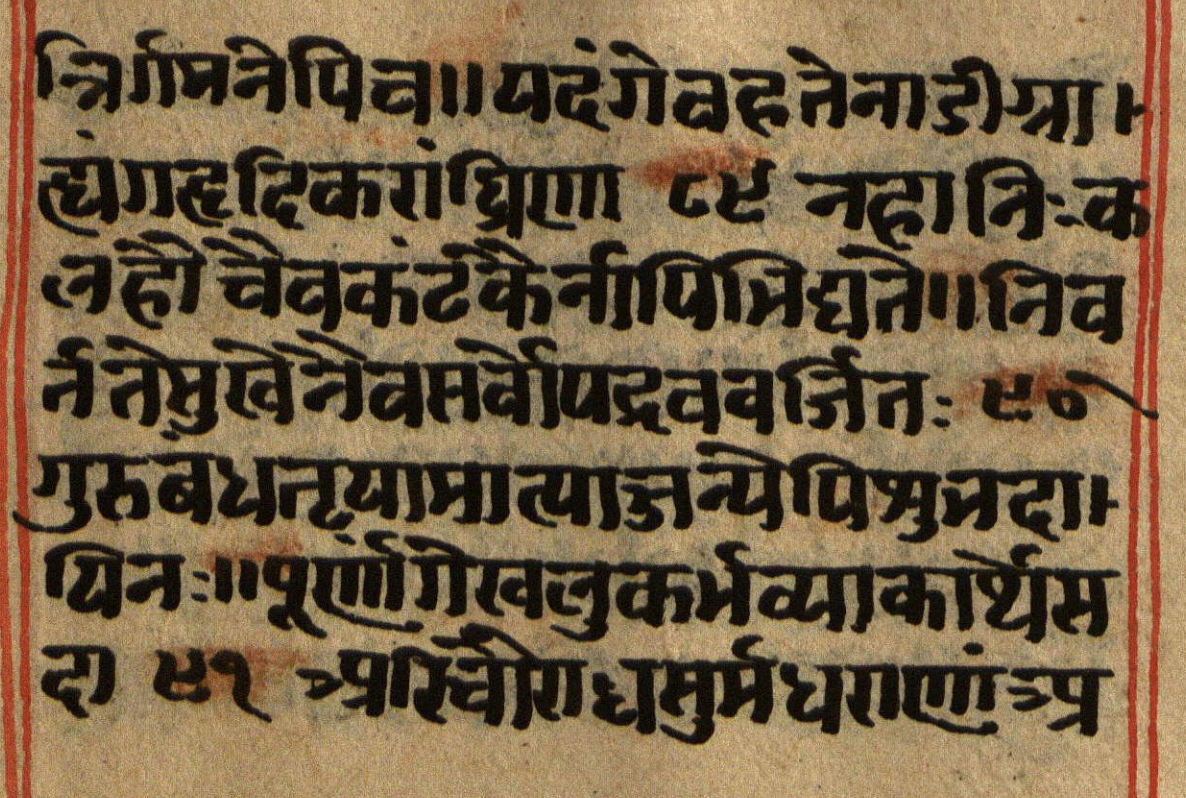 न्निर्गमनेपिच॥यदंगेवहतेनाडीग्रा।
ह्यंगहृदिकरांघ्रिणा ८९ नहानिःक
लहौचैवकंटकैर्नापिभिद्यते॥निव
र्नतेसुखेनैवसर्वोपद्रववर्जितः ९०
गुरुबंधनृयामात्याऽन्येपिशुभदा।
यिनः॥पूर्णांगेखलुकर्भव्याकार्थैस
दा ९१ प्रश्चौराद्यसुर्मधराणां